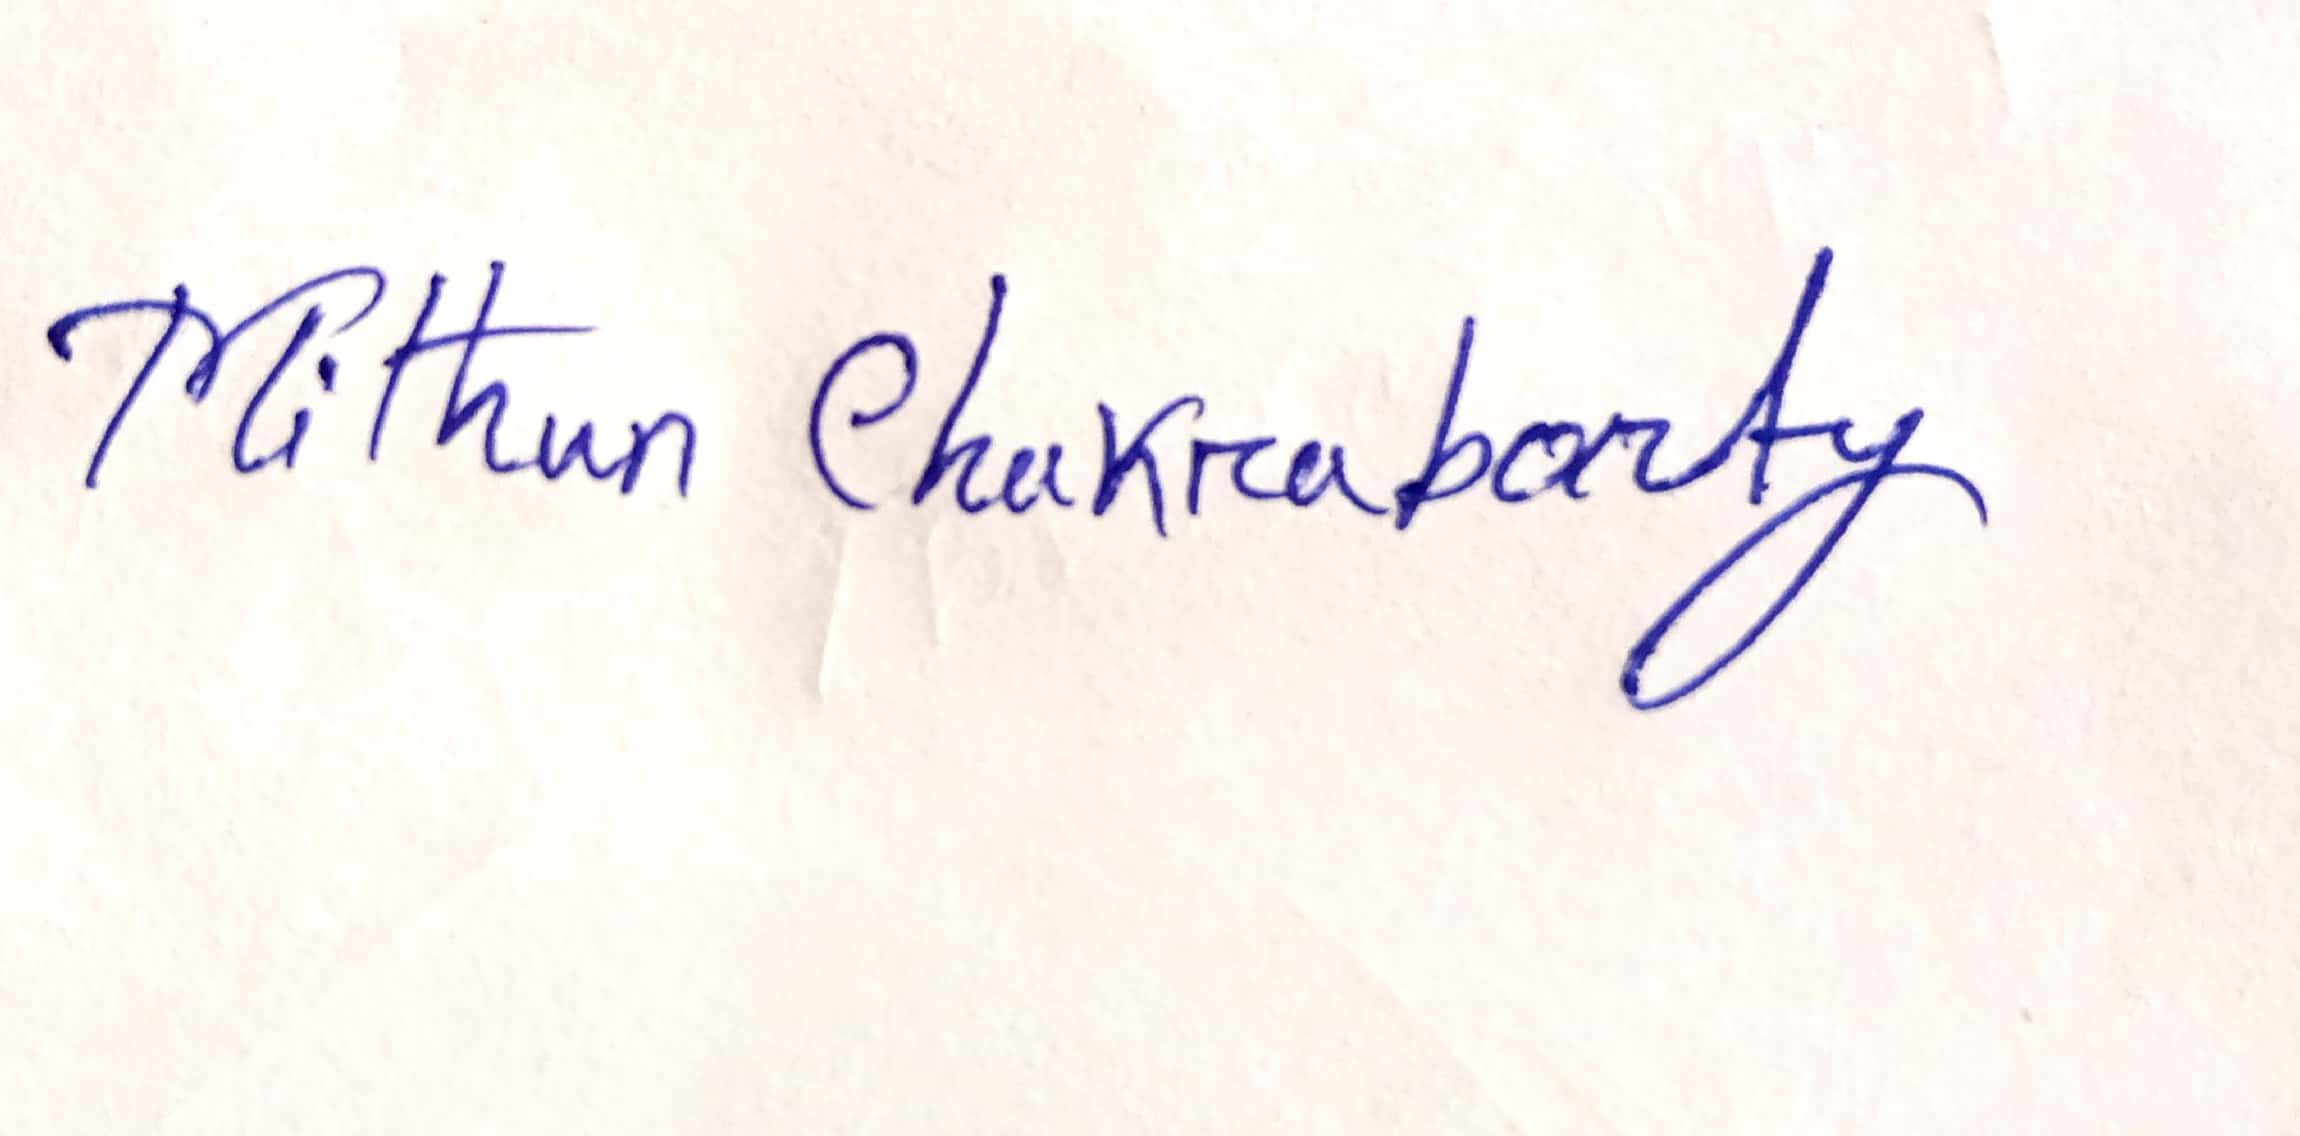 Mithun Chakraborty